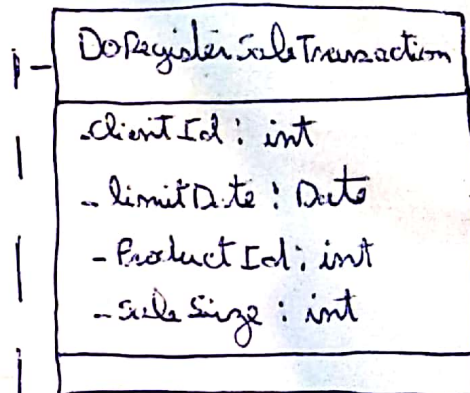 DoRegisterSaleTransaction
- clientId : int
- limitDate : Date
- ProductId : int
- SaleSize : int